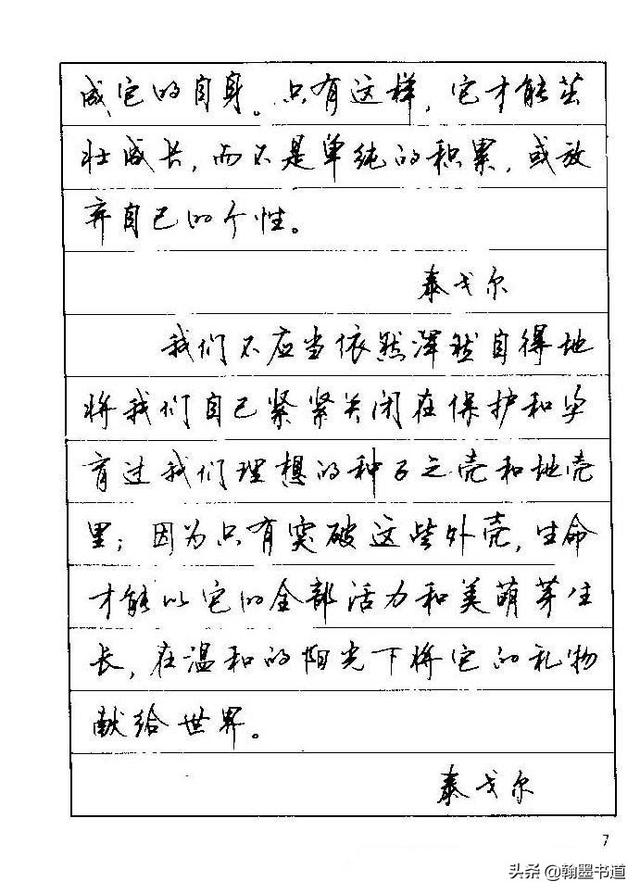 成它的自身。只有这样，它才能茁
壮成长，而不是单纯的积累，或放
弃自己的个性。
泰戈尔
我们不应当依然浑然自得地
将我们自己紧紧关闭在保护和孕
育过我们理想的种子之壳和地壳
里；因为只有突破这些外壳，生命
才能以它的全部活力和美萌芽生
长，在温和的阳光下将它的礼物
献给世界。
泰戈尔
7
头条 @翰墨书道